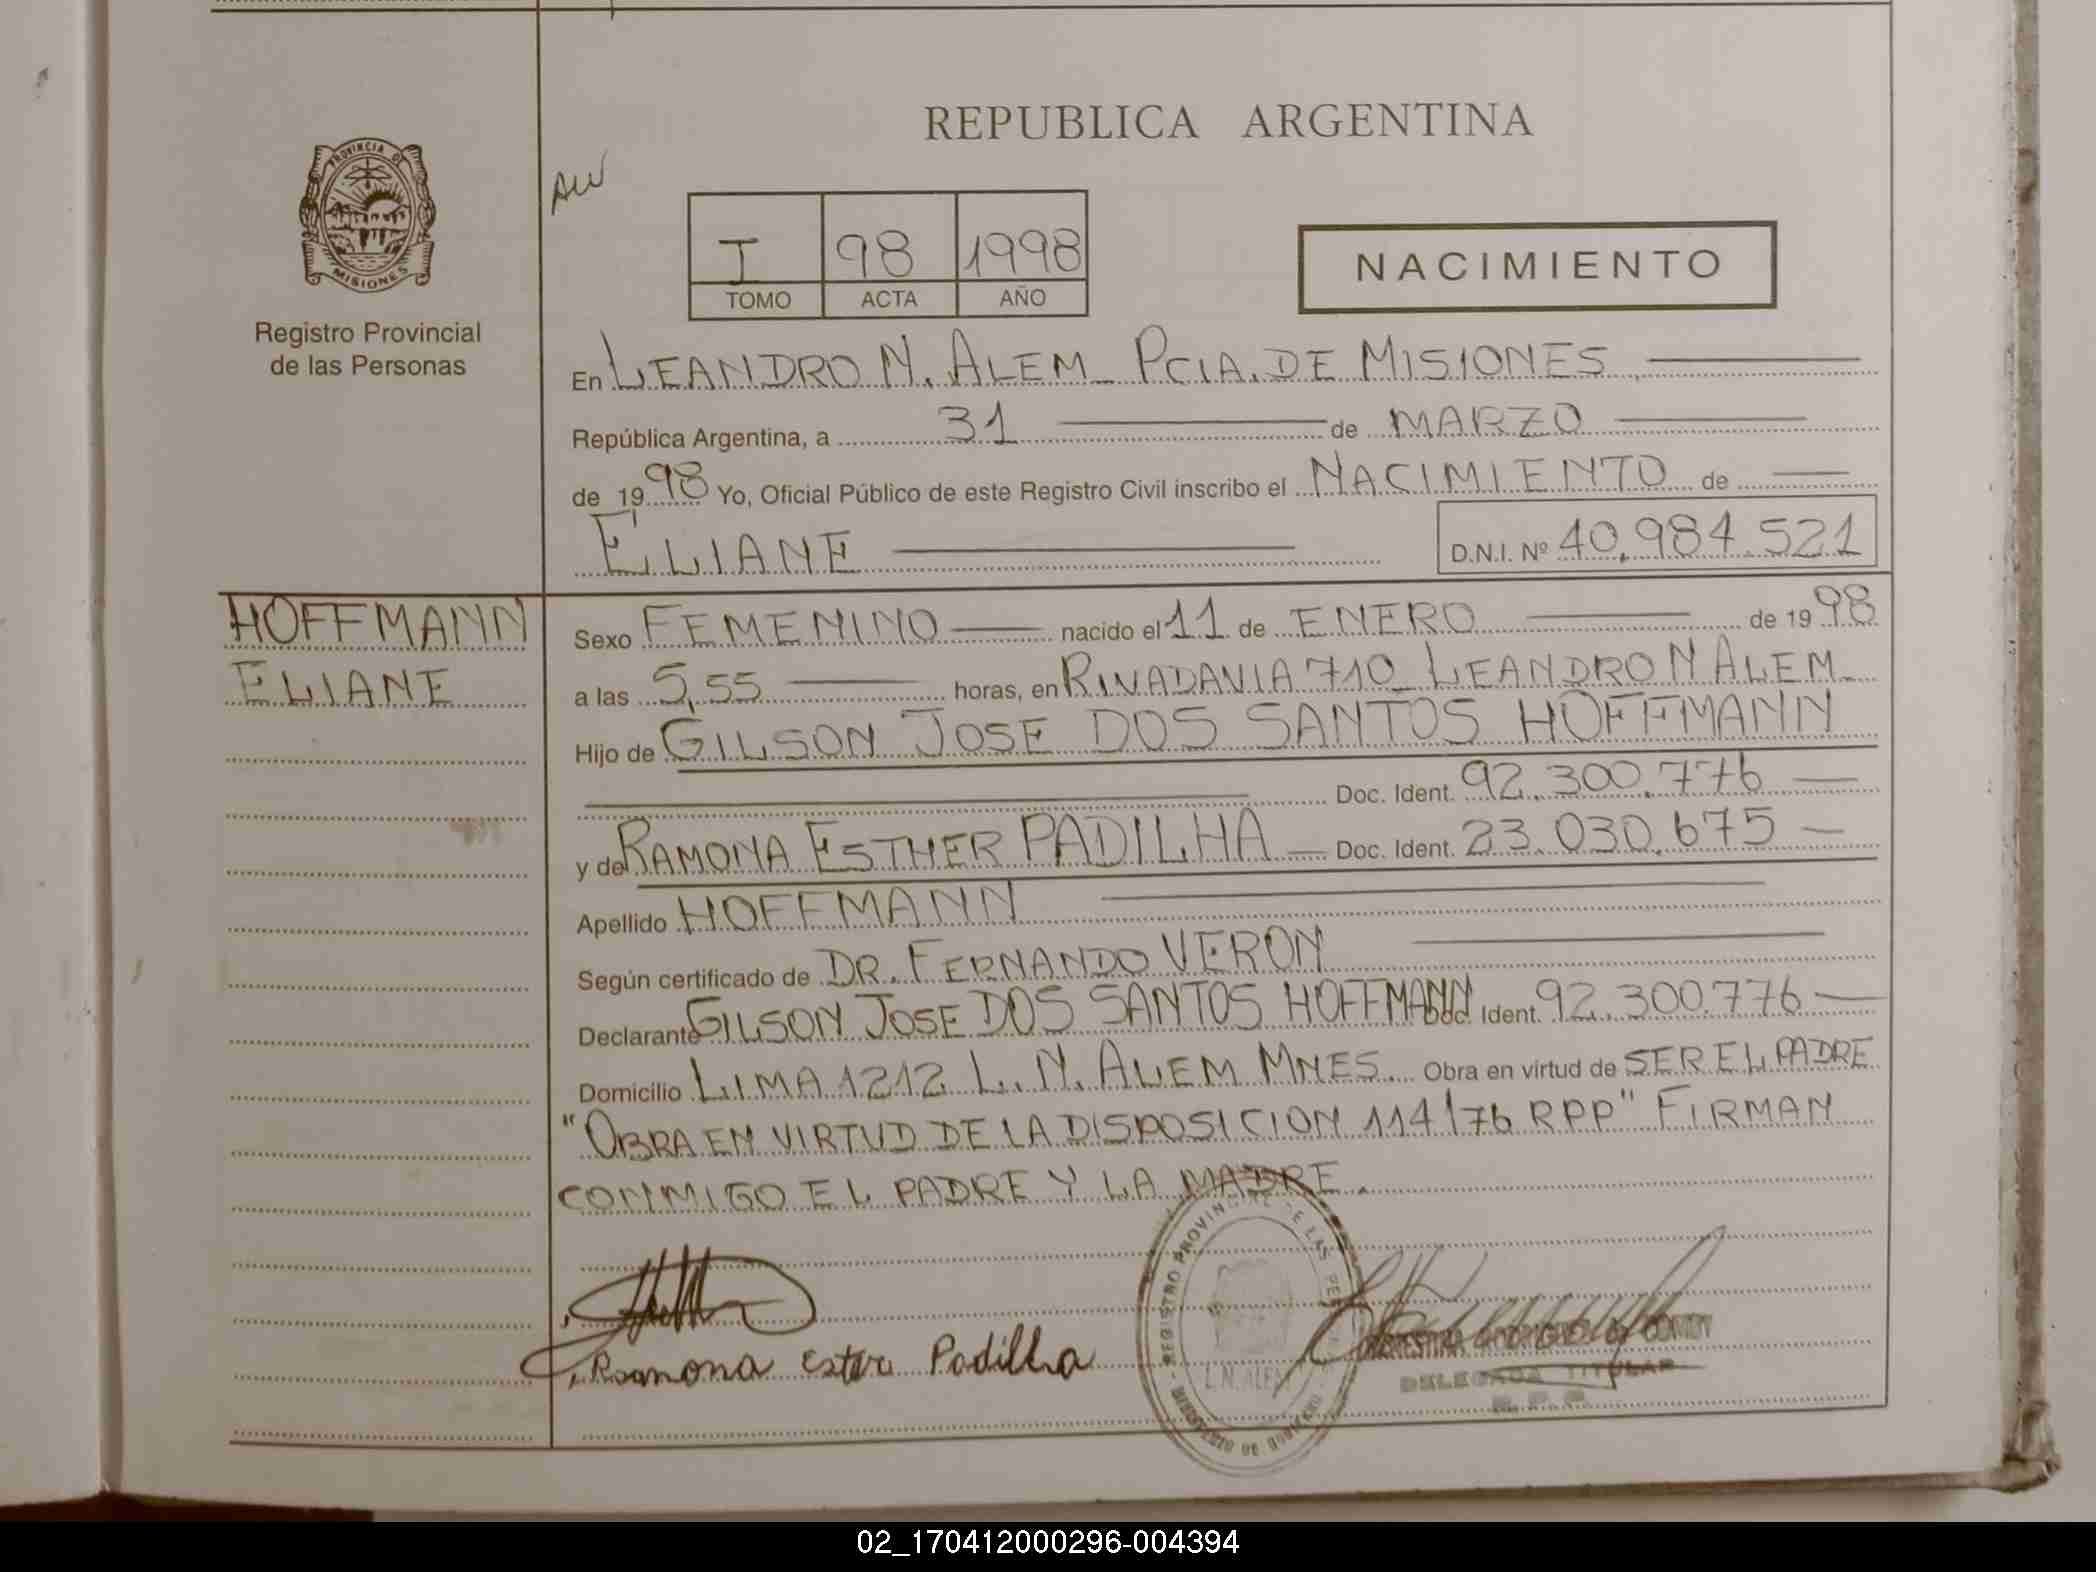 REPUBLICA ARGENTINA
PROVINCIA DE
MISIONES
Registro Provincial
de las Personas
I 98 1998
TOMO ACTA AÑO
NACIMIENTO
En LEANDRO N. ALEM - PCIA. DE MISIONES
República Argentina, a 31 de MARZO
de 1998 Yo, Oficial Público de este Registro Civil inscribo el NACIMIENTO de
ELIANE D.N.I. Nº 40.984.521
HOFFMANN
ELIANE
Sexo FEMENINO nacido el 11 de ENERO de 1998
a las 5,55 horas, en RIVADAVIA 710 - LEANDRO N ALEM -
Hijo de GILSON JOSE DOS SANTOS HOFFMANN
Doc. Ident. 92.300.776
y de RAMONA ESTHER PADILHA Doc. Ident. 23.030.675
Apellido HOFFMANN
Según certificado de DR. FERNANDO VERON
Declarante GILSON JOSE DOS SANTOS HOFFMANN Doc. Ident. 92.300.776
Domicilio LIMA 1212 L. N. ALEM MNES. Obra en virtud de SER EL PADRE
"OBRA EN VIRTUD DE LA DISPOSICION 114/76 RPP" FIRMAN
CONMIGO EL PADRE Y LA MADRE.
Ramona Ester Padilha
REGISTRO PROVINCIAL DE LAS
L.N. ALEM
DELEGADA TITULAR
R.P.P.
02_170412000296-004394